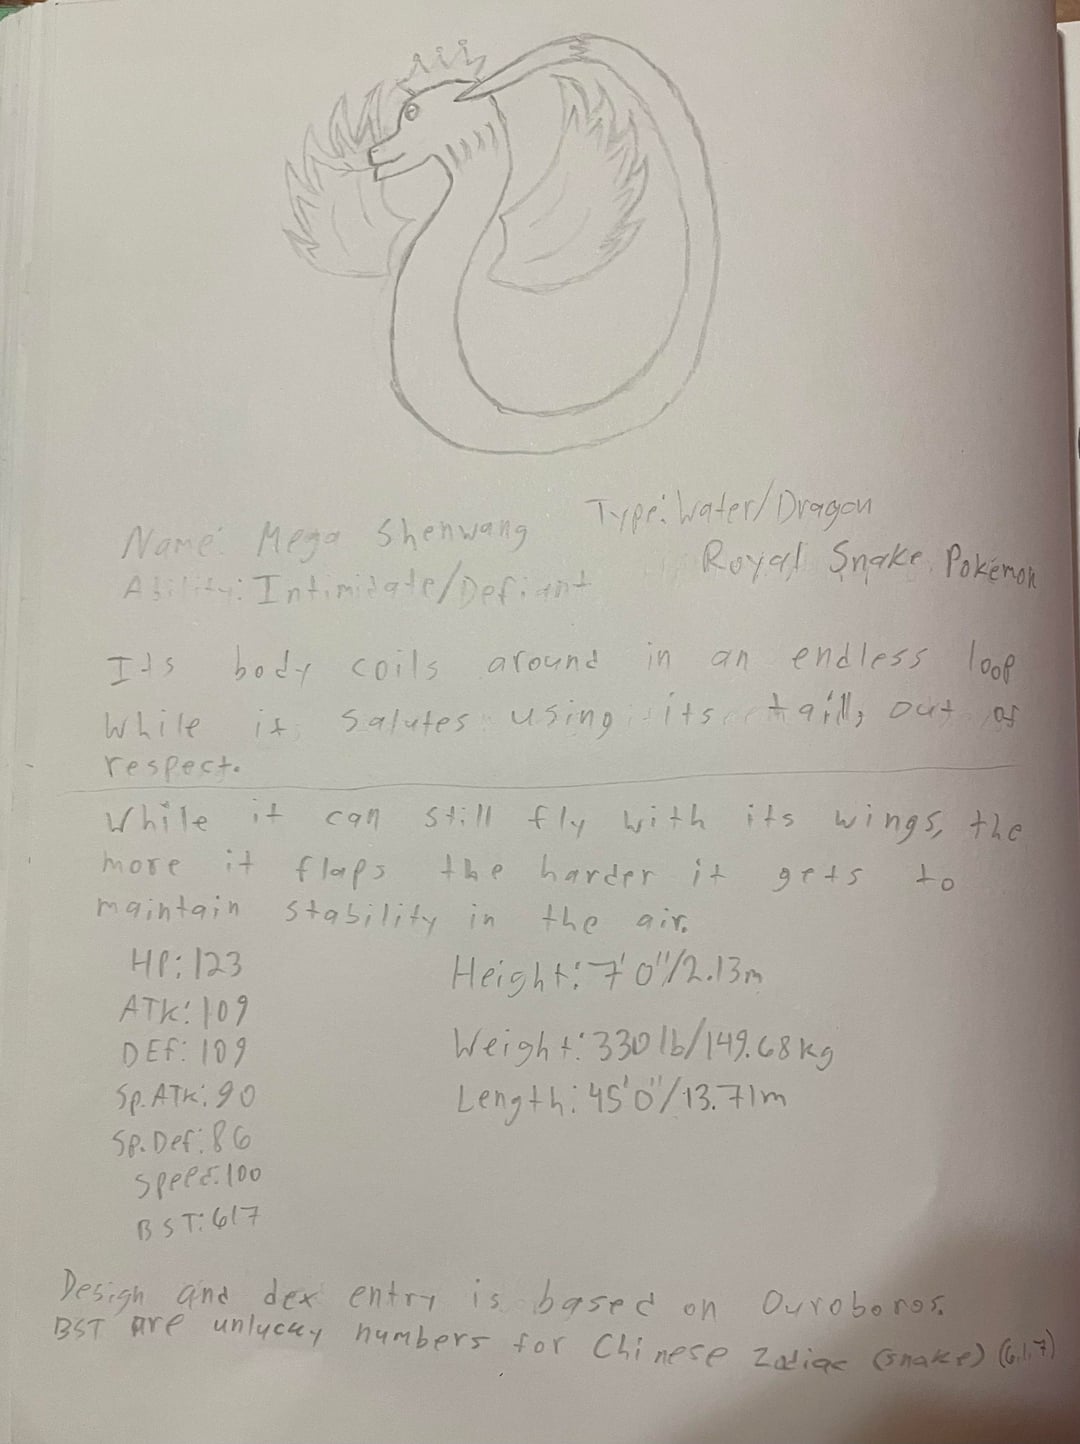 Name: Mega Shenwang
Type: Water/Dragon
Ability: Intimidate/Defiant
Royal Snake Pokemon
Its body coils around in an endless loop
while it salutes using its tail, out of
respect.
While it can still fly with its wings, the
more it flaps the harder it gets to
maintain stability in the air.
HP: 123
ATK: 109
DEf: 109
Sp.ATK: 90
Sp.Def: 86
Speed: 100
BST: 617
Height: 7'0"/2.13m
Weight: 330 lb/149.68kg
Length: 45'0"/13.71m
Design and dex entry is based on Ouroboros.
BST are unlucky numbers for Chinese Zodiac (snake) (6,1,7)